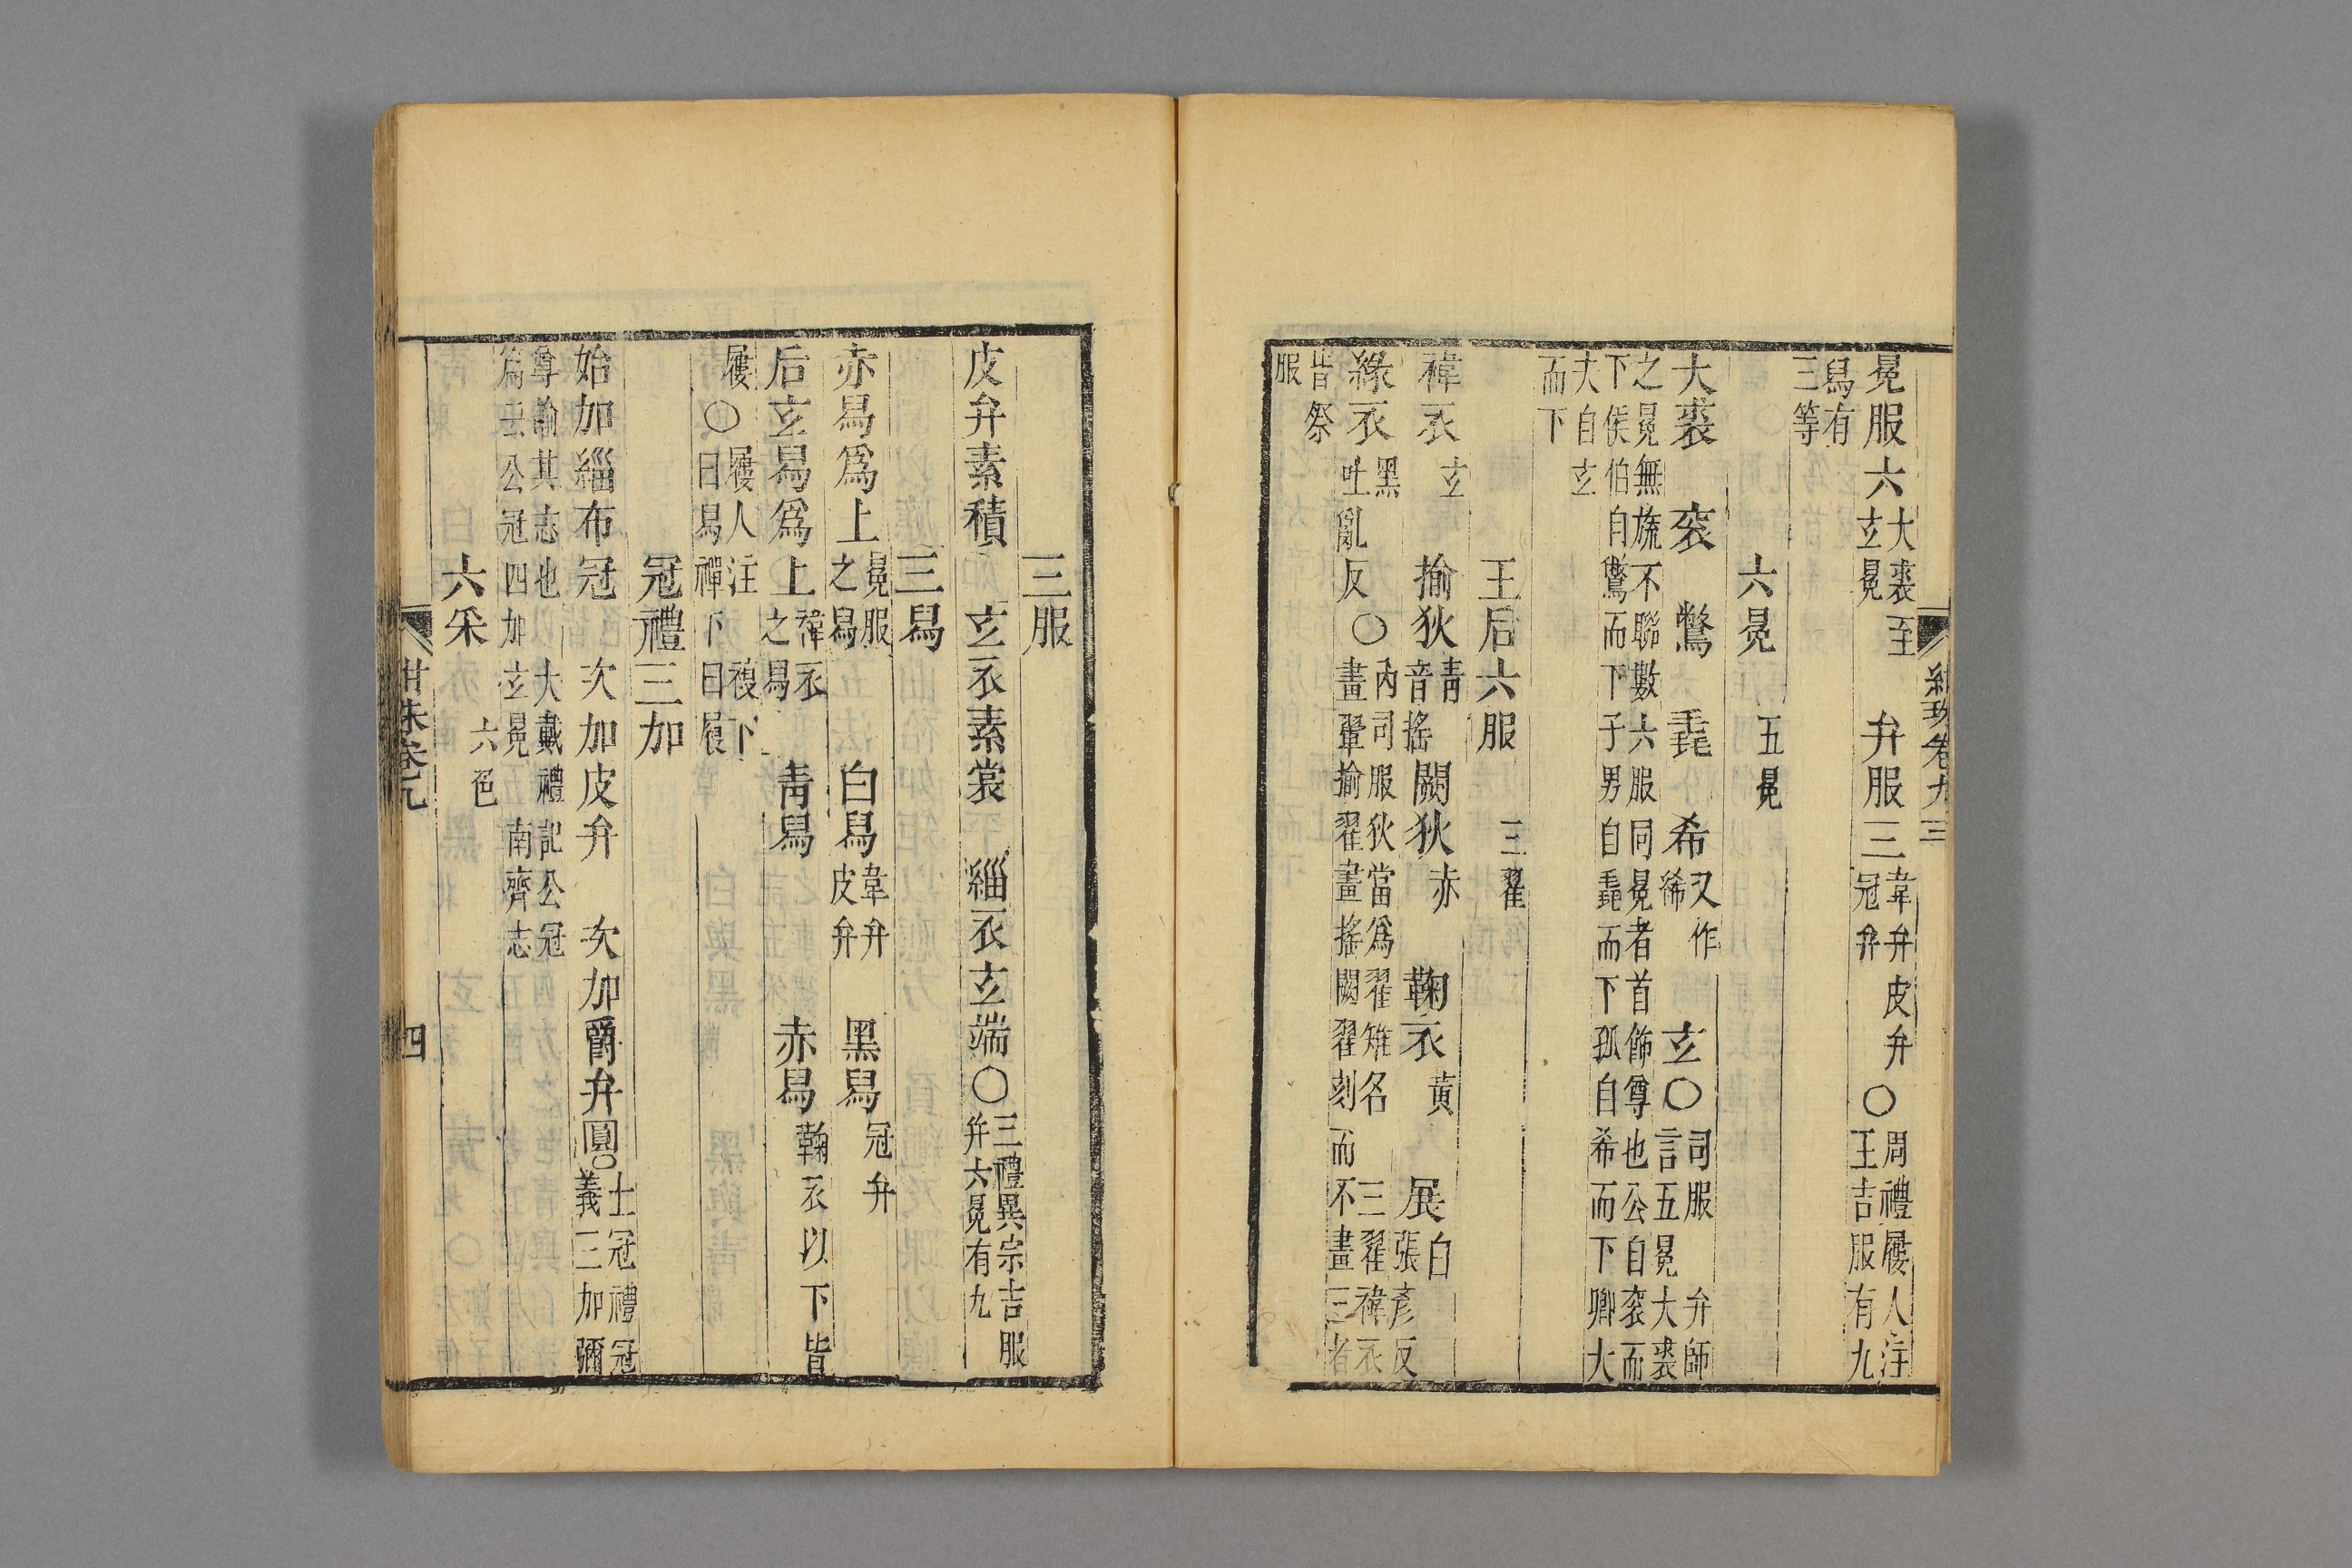 冕服六大裘玄冕至 弁服三韋弁皮弁冠弁〇周禮屨人注王吉服有九
舄有三等
六冕 五冕
大裘 衮 鷩 毳 希又作絺 玄〇司服 弁師言五冕大裘
之冕無旒不聯數六服同冕者首飾尊也公自衮而下侯伯自鷩而下子男自毳而下孤自希而下卿大
夫自玄而下
王后六服 三翟
褘衣玄 揄狄青音搖 闕狄赤 鞠衣黃 展白張彥反
緣衣黑吐亂反〇內司服狄當爲翟雉名 三翟褘衣畫翬揄翟畫搖闕翟刻而不畫三者
皆祭服
三服
皮弁素積 玄衣素裳 緇衣玄端〇三禮異宗吉服并六冕有九
三舄
赤舄爲上冕服之舄 白舄韋弁皮弁 黑舄冠弁
后玄舄爲上褘衣之舄 青舄 赤舄鞠衣以下皆
屨〇屨人注 複下曰舄禪下曰屨
冠禮三加
始加緇布冠 次加皮弁 次加爵弁圓〇士冠禮冠義三加彌
尊諭其志也 大戴禮記公冠篇云公冠四加玄冕 南齊志
六采 六色
紺珠卷九 三
紺珠卷九 四